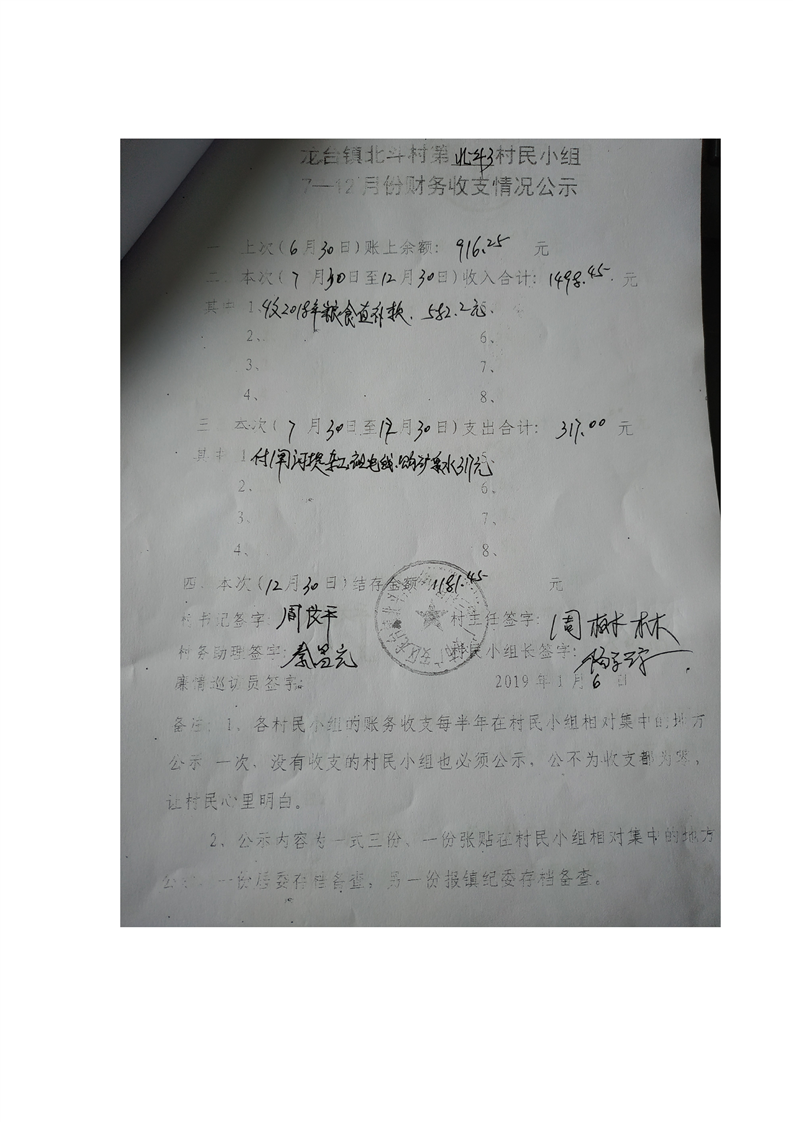 龙台镇北斗村第北斗3村民小组
7—12月份财务收支情况公示
一、上次(6月30日)账上余额: 916.25 元
二、本次(7月30日至12月30日)收入合计: 1498.45 元
其中1、收2018年粮食直补款. 582.2元 5、
2、 6、
3、 7、
4、 8、
三、本次(7月30日至12月30日)支出合计: 317.00 元
其中1、付 电线 矿泉水317元 5、
2、 6。
3、 7、
4、 8、
四、本次(12月30日)结存金额: 1181.45 元
村书记签字: 村主任签字: 周树林
村务助理签字: 秦昌元 村民小组长签字:
廉情巡访员签字: 2019年1月6日
备注: 1、各村民小组的账务收支每半年在村民小组相对集中的地方
公示一次、没有收支的村民小组也必须公示, 公不为收支都为
让村民心里明白。
2、公示内容为一式三份、一份张贴在村民小组相对集中的地方
公示, 一份居委存档备查, 另一份报镇纪委存档备查。